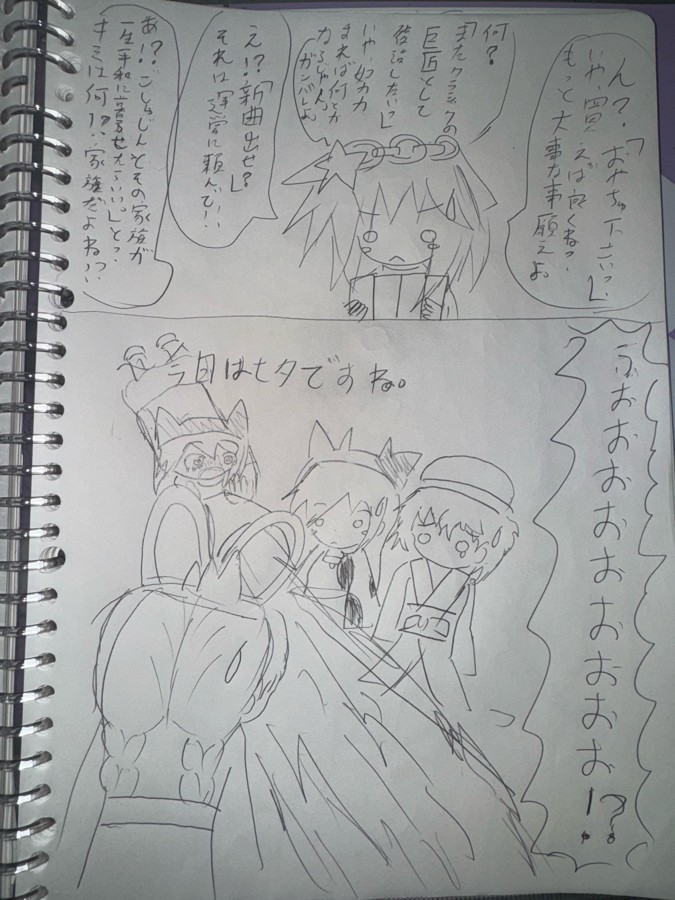 ん？「おやつ下さいっ」
いや、買えば良くねっ
もっと大事な事願えよ。
何？
「またクラシックの
巨匠として
復活したいっ」
いや…努力
すれば何とか
なるじゃん。
ガンバレよ
え！？「新曲出せ？」
それは運営に頼んで！！
あ！？「ごしゅじんとその家族が
一生平和に暮らせたらいい。」とっ
キミは何！？家族だよねっ
ふおおおおおおおお！？
今日は七夕ですね。